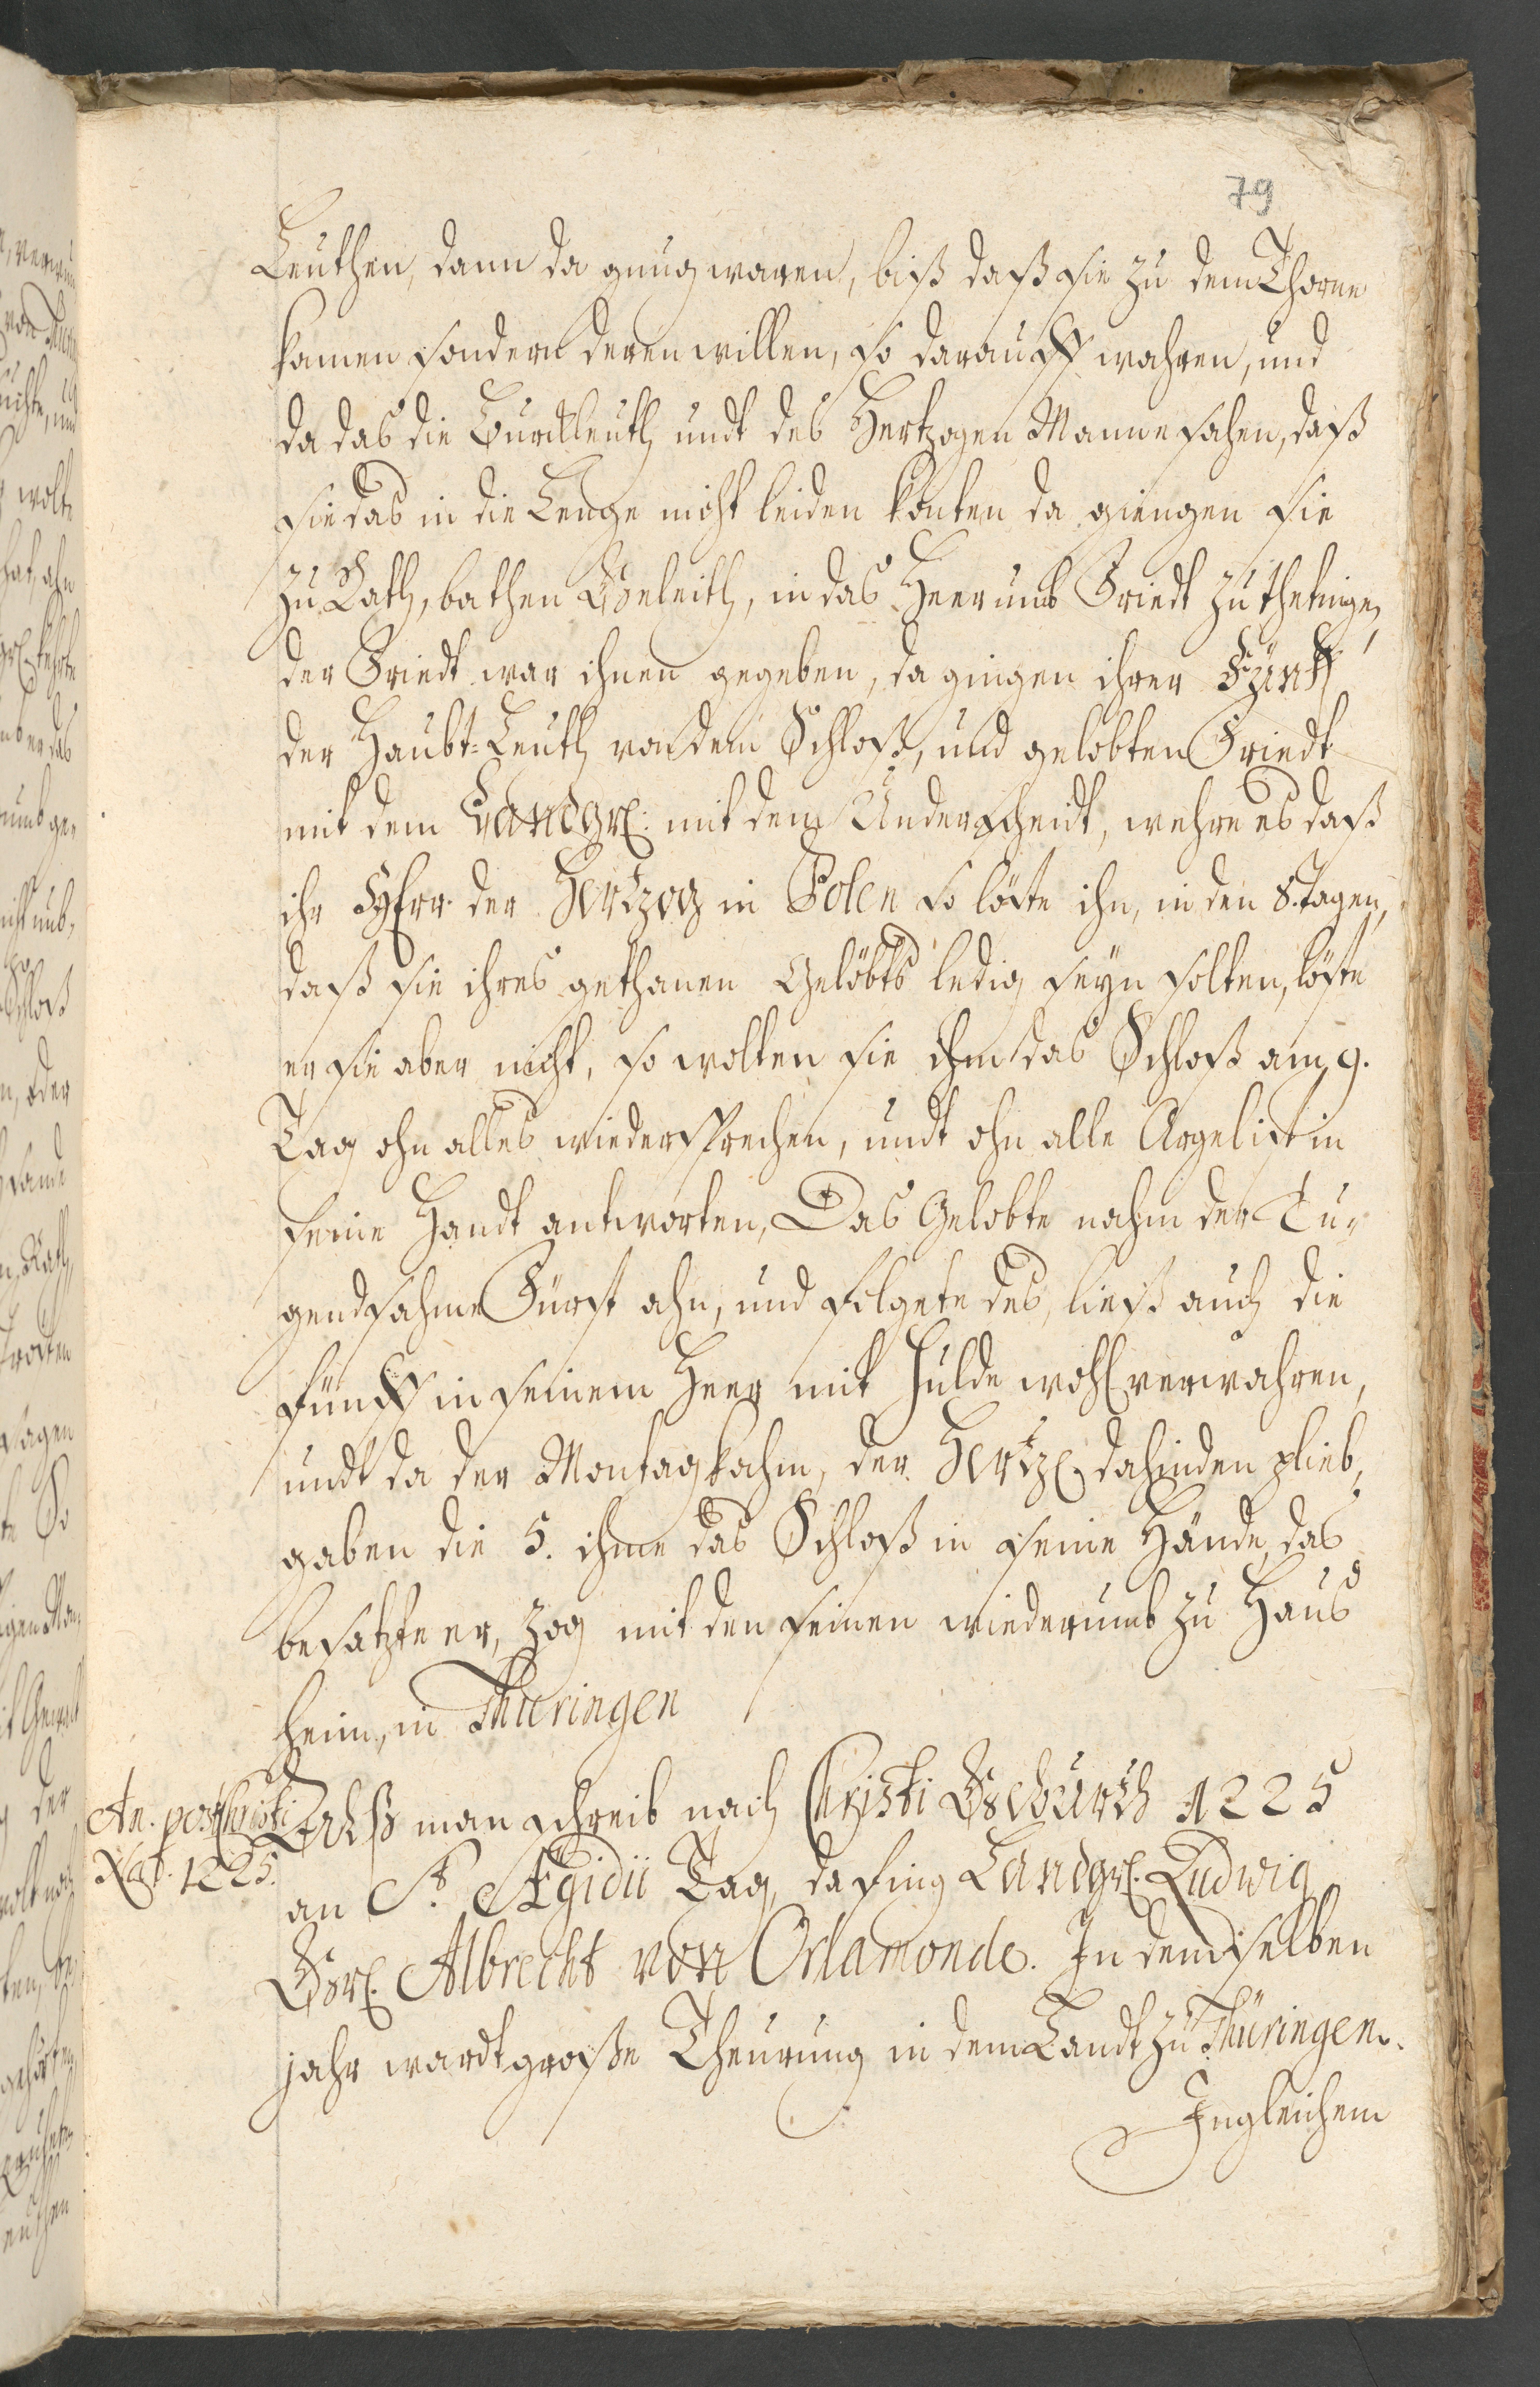 79
Leuthen, dann da gnug waren, biß daß sie zu dem Thore
kamen sondern deren willen, so darauff wahren, und
da das die Burckleuth undt des Hertzogen Manne sahen, daß
sie das in die Lenge nicht leiden konten da giengen sie
zu Rath, bathen Geleith, in das Heer umb Friedt zu thetingen,
der Friedt war ihnen gegeben, da gingen ihrer Fünff
der Haubt-Leuth von dem Schloß, und gelobten Friedt
mit dem Landgr: mit dem Underscheidt, wehre es daß
ihr Herr der Hertzog in Polen so löste ihn, in den 8. tagen,
daß sie ihres gethanen Gelöbts ledig seyn solten, löste
er sie aber nicht, so wolten sie ihm das Schloß am 9.
Tag ohn alles wiedersprechen, undt ohn alle Argelist in
seine Handt antworten, Das Gelobte nahm der Tu-
gendsahme Fürst ahn, und folgete des, ließ auch die
fünff in seinem Heer mit Hulde wohl verwahren,
undt da der Montag kahm, der Hertz. dahinden plieb,
gaben die 5. ihme das Schloß in seine Hände, das
besatzte er, zog mit den seinen wiederumb zu Haus
heim, in Thüringen
An. post Christi
Nat. 1225.
Alß man schreib nach Christi Geburth 1225
an St. Ægidii Tag, da fing Landgr. Ludwig
Gr. Albrecht von Orlamonde. In demselben
jahr wardt große Theurung in dem Landt zu Thüringen.
Ingleichem